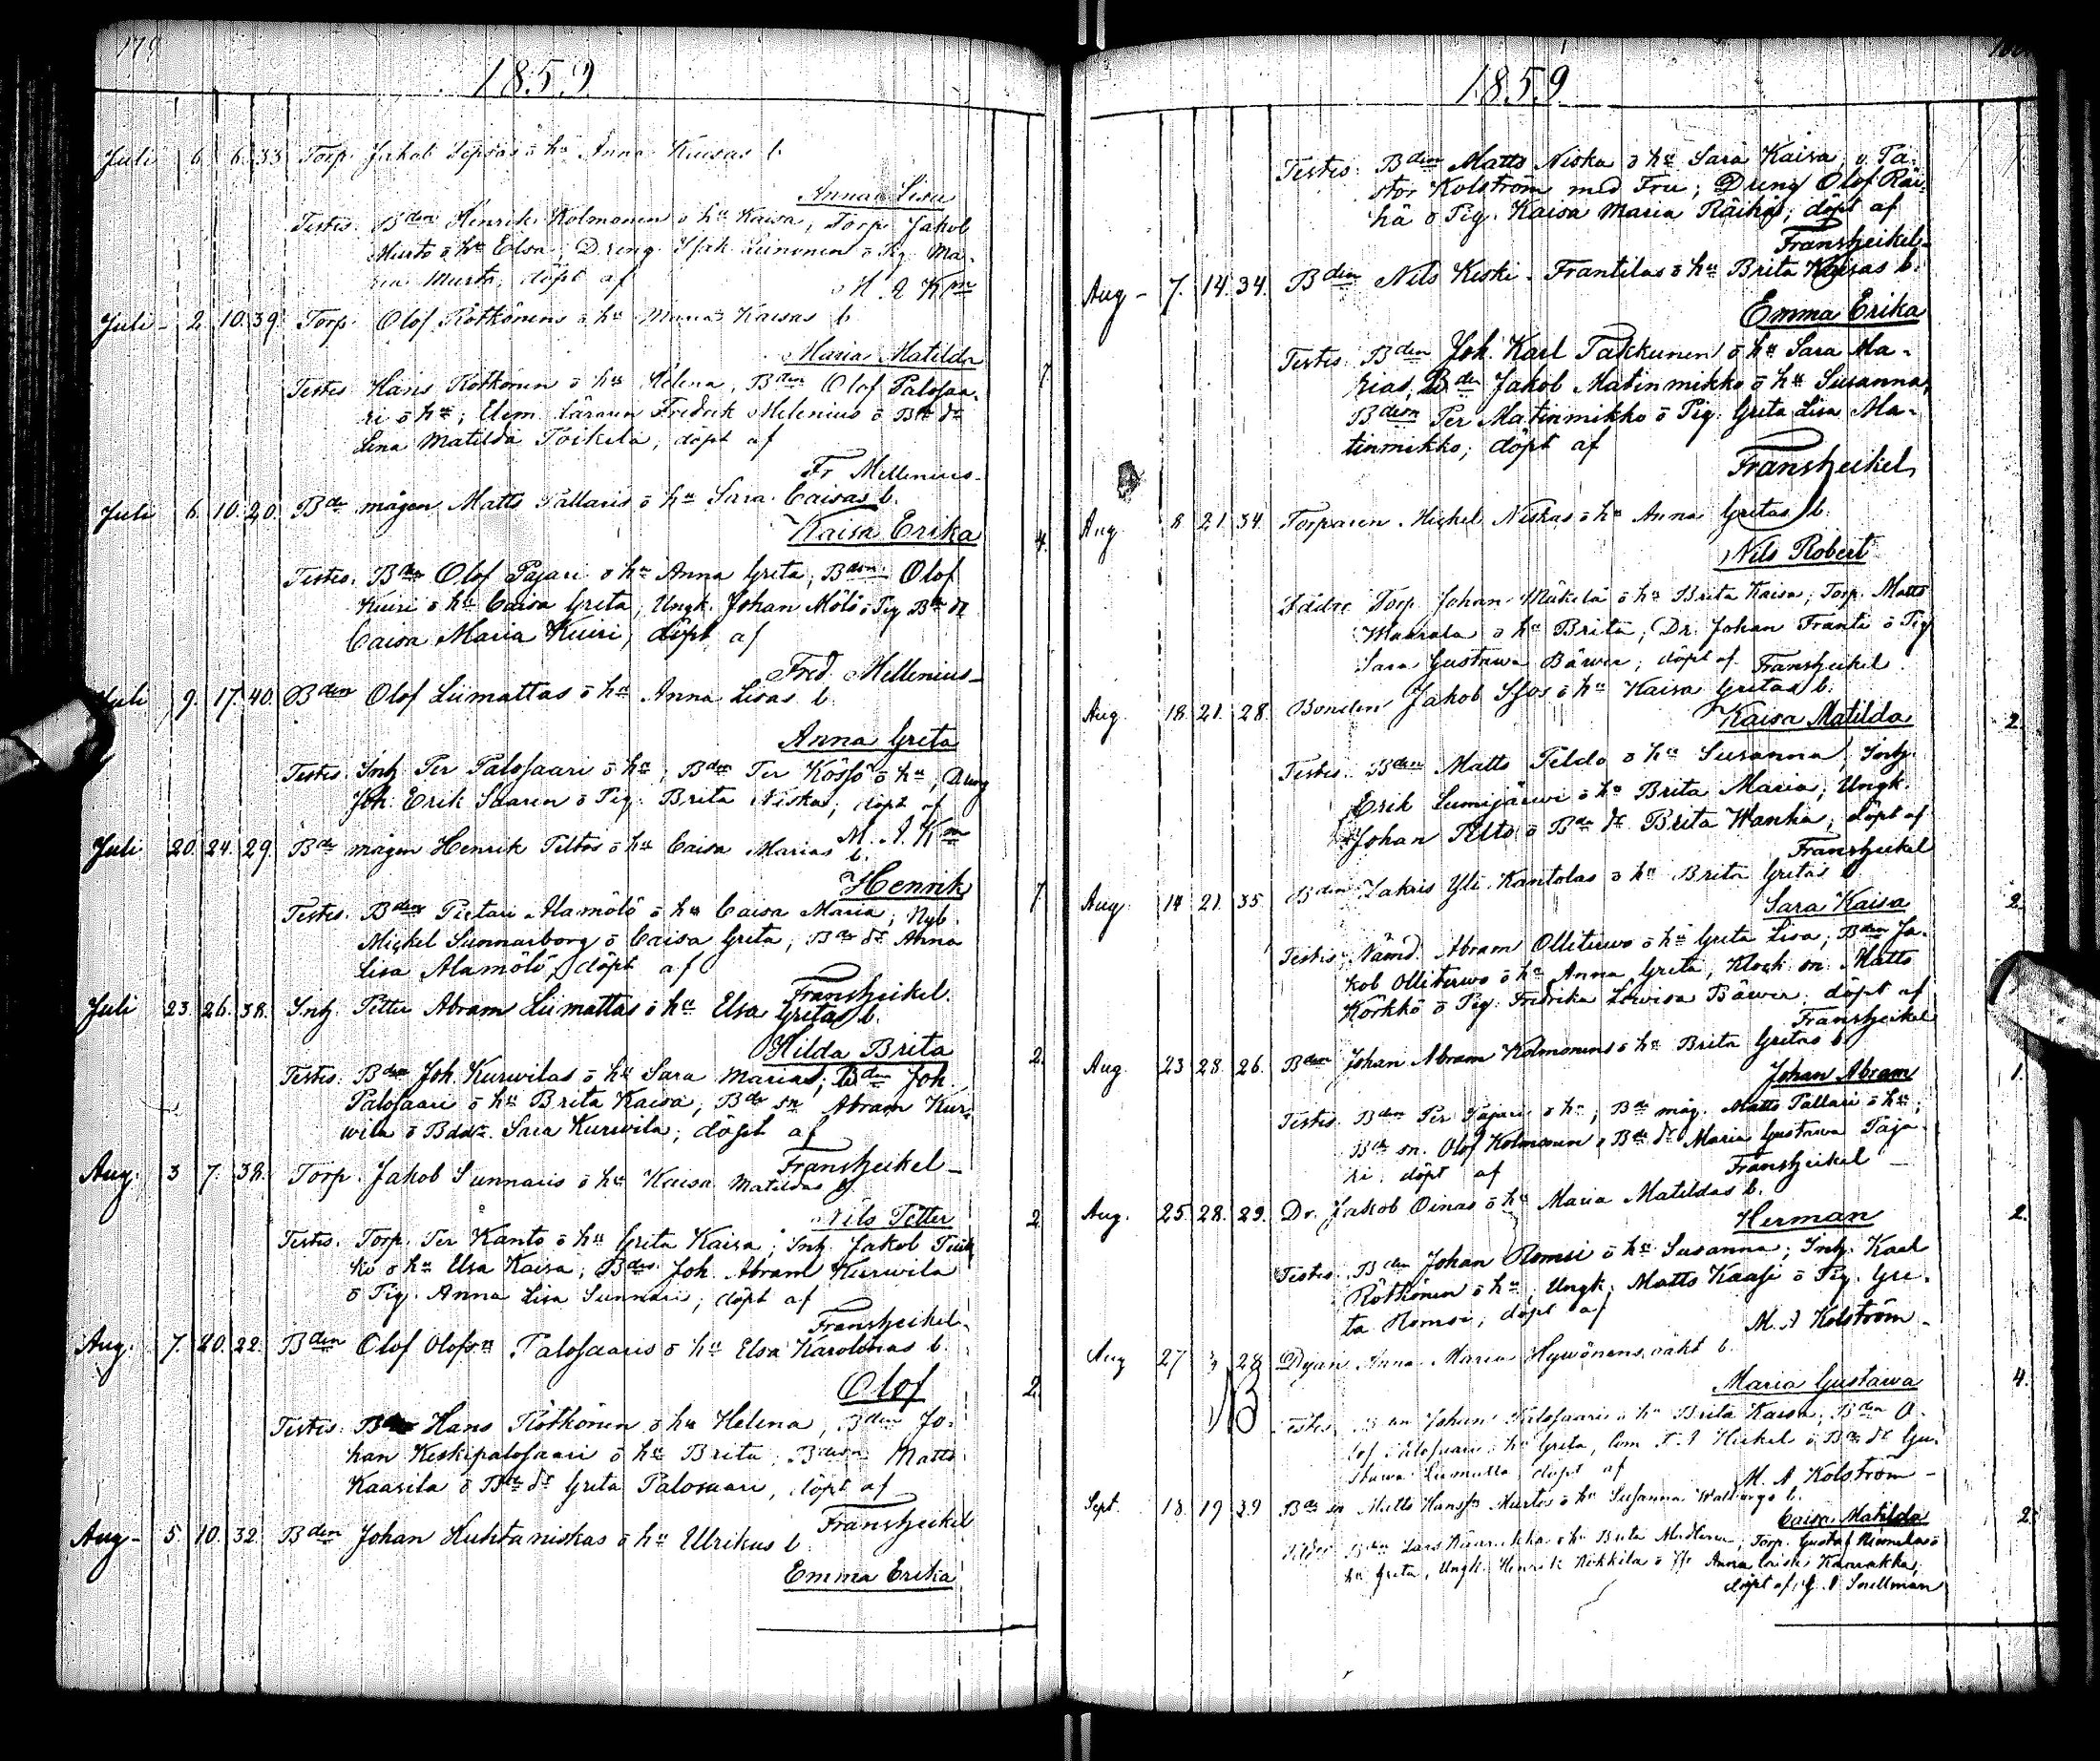 179
1859
Juli 6. 6. 33 Torp. Jakob Sipolas ō hū Anna Kaisas b.
Anna Lisa
Testes. Bden Henrik Kolmonen ō hū Kaisa, Torp. Jakob
Murto ō hū Elsa; Dreng Isak Leinonen ō Pig. Ma-
ria Murto, döpt af
M. A. Km
Juli - 2. 10. 39. Torp. Olof Rötkönens ō hū Maria Kaisas b.
Maria Matilda
Testes Hans Rötkönen ō hū Helena, Bden Olof Palosaa-
ri ō hū; Elem. läraren Fredrik Melenius ō Bde dr
Lena Matilda Poikela, döpt af
Fr Mellenius
Juli 6. 10. 20. Bde mågen Matts Pallaris ō hū Sara Caisas b.
Kaisa Erika
4.
Testes. Bden Olof Pajari ō hū Anna Greta, Bden Olof
Kuiri ō hū Caisa Greta, Ungk. Johan Mölö ō Pig Bde dr
Caisa Maria Kuiri, döpt af
Fred. Mellenius
Juli 9. 17. 40. Bden Olof Liimattas ō hū Anna Lisas b.
Anna Greta
Testes. Inh. Per Palosaari ō hū; Bden Per Kössö ō hū; Dreng
Joh. Erik Saaren ō Pig. Brita Niska; döpt af
M. A. Km
Juli 20. 24. 29. Bde mågen Henrik Peltos ō hū Caisa Marias b.
Henrik
7.
Testes. Bden Pietari Alamölö ō hū Caisa Maria; Nyb.
Mickel Sunnarborg ō Caisa Greta; Bde dr Anna
Lisa Alamölö, döpt af
Franzheikel.
Juli 23. 26. 38. Inh. Petter Abram Liimattas ō hū Elsa Gretas b.
Hilda Brita
2.
Testes. Bden Joh. Kurwilas ō hū Sara Marias; Bden Joh.
Palosaari ō hū Brita Kaisa, Bde sn Abram Kur-
wila ō Bdedr. Sara Kurwila; döpt af
Franzheikel
Aug. 3 7. 38. Torp. Jakob Sunnaris ō hū Kaisa Matildas b.
Nils Petter
2
Testes. Torp. Per Kanto ō hū Greta Kaisa; Inh. Jakob
ki ō hū Elsa Kaisa; Bden Joh. Abram Kurwila
ō Pig. Anna Lisa Sunnari; döpt af
Franzheikel.
Aug. 7. 20. 22. Bden Olof Olofssn Palosaaris ō hū Elsa Karolinas b.
Olof
2.
Testes. Bden Hans Rötkönen ō hū Helena, Bden Jo-
han Keskipalosaari ō hū Brita; Bdesn Matts
Kaarila ō Bde dr Greta Palosaari, döpt af
Franzheikel
Aug - 5. 10. 32. Bden Johan Kuhtaniskas ō hū Ulrikas b.
Emma Erika
1859
Testes. Bden Matts Niska ō hū Sara Kaisa; v. Pa-
stor Kolström med Fru; Dreng Olof Räi-
hä ō Pig. Kaisa Maria Räihä; döpt af
Franzheikel
Aug - 7. 14. 34. Bden Nils Keski-Frantilas ō hū Brita Kaisas b.
Emma Erika
7.
Testes. Bden Joh. Karl Takkunen ō hū Sara Ma-
rias, Bden Jakob Matinmikko ō hū Susanna,
Bdesn Per Matinmikko ō Pig. Greta Lisa Ma-
tinmikko; döpt af
Franzheikel
Aug. 8 21. 34. Torparen Mickel Niskas ō hū Anna Gretas b.
Nils Robert
Torp. Johan Mäkelä ō hū Brita Kaisa; Torp. Matts
Maarala ō hū Brita; Dr. Johan Franti ō Pig
Sara Gustawa Bäwer; döpt af Franzheikel
Aug. 18. 21. 28. Bonden Jakob Isos ō hū Kaisa Gretas b.
Kaisa Matilda
2.
Testes. Bden Matts Peldo ō hū Susanna; Inh.
Erik Lumijärwi ō hū Brita Maria; Ungk.
Johan Pelto ō Bde dr Brita Wanha; döpt af
Franzheikel
Aug. 14. 21. 35. Bden Zakris Yli-Kantolas ō hū Brita Gretas b.
Sara Kaisa
2.
Testes. Nämd. Abram Ollitervo ō hū Greta Lisa; Bden Ja-
kob Ollitervo ō hū Anna Greta, Klock. sn. Matts
Körkkö ō Pig. Fredrika Lowisa Bäwer; döpt af
Franzheikel
Aug. 23 28. 26. Bden Johan Abram Kolmonens ō hū Brita Gretas b.
Johan Abram
1.
Testes. Bden Per Pajari ō hū; Bde måg. Matts Pallari ō hū;
Bde sn. Olof Kolmonen ō Bde dr Maria Gustawa Paja-
ri; döpt af Franzheikel
Aug. 25. 28. 29. Dr. Jakob Oinas ō hū Maria Matildas b.
Herman
2.
Testes. Bden Johan Romsi ō hū Susanna; Inh. Karl
Rötkönen ō hū, Ungk. Matts Kaasi ō Pig. Gre-
ta Romsi, döpt af
M. A Kolström
Aug 27 3 28 Dejan Anna Maria Hywönens oäkt b.
Maria Gustawa
4.
NB
Testes. Bden Johan Palosaari ō hū Brita Kaisa, Bden O-
lof Palosaari ō hū Greta, Com. F. A Heikel ō Bde dr Gu-
stawa Liimatta, döpt af
M. A Kolström
Sept. 18 19 39 Bde sn Matts Hanss Murtos ō hū Susanna Walborgs b.
Caisa Matilda
2.
Bden Lars ō hū Brita, Torp. Gustaf ō
hū Greta, Ungk. Henrik Kokkila ō Anna Caisa
döpt af G. A Snellman